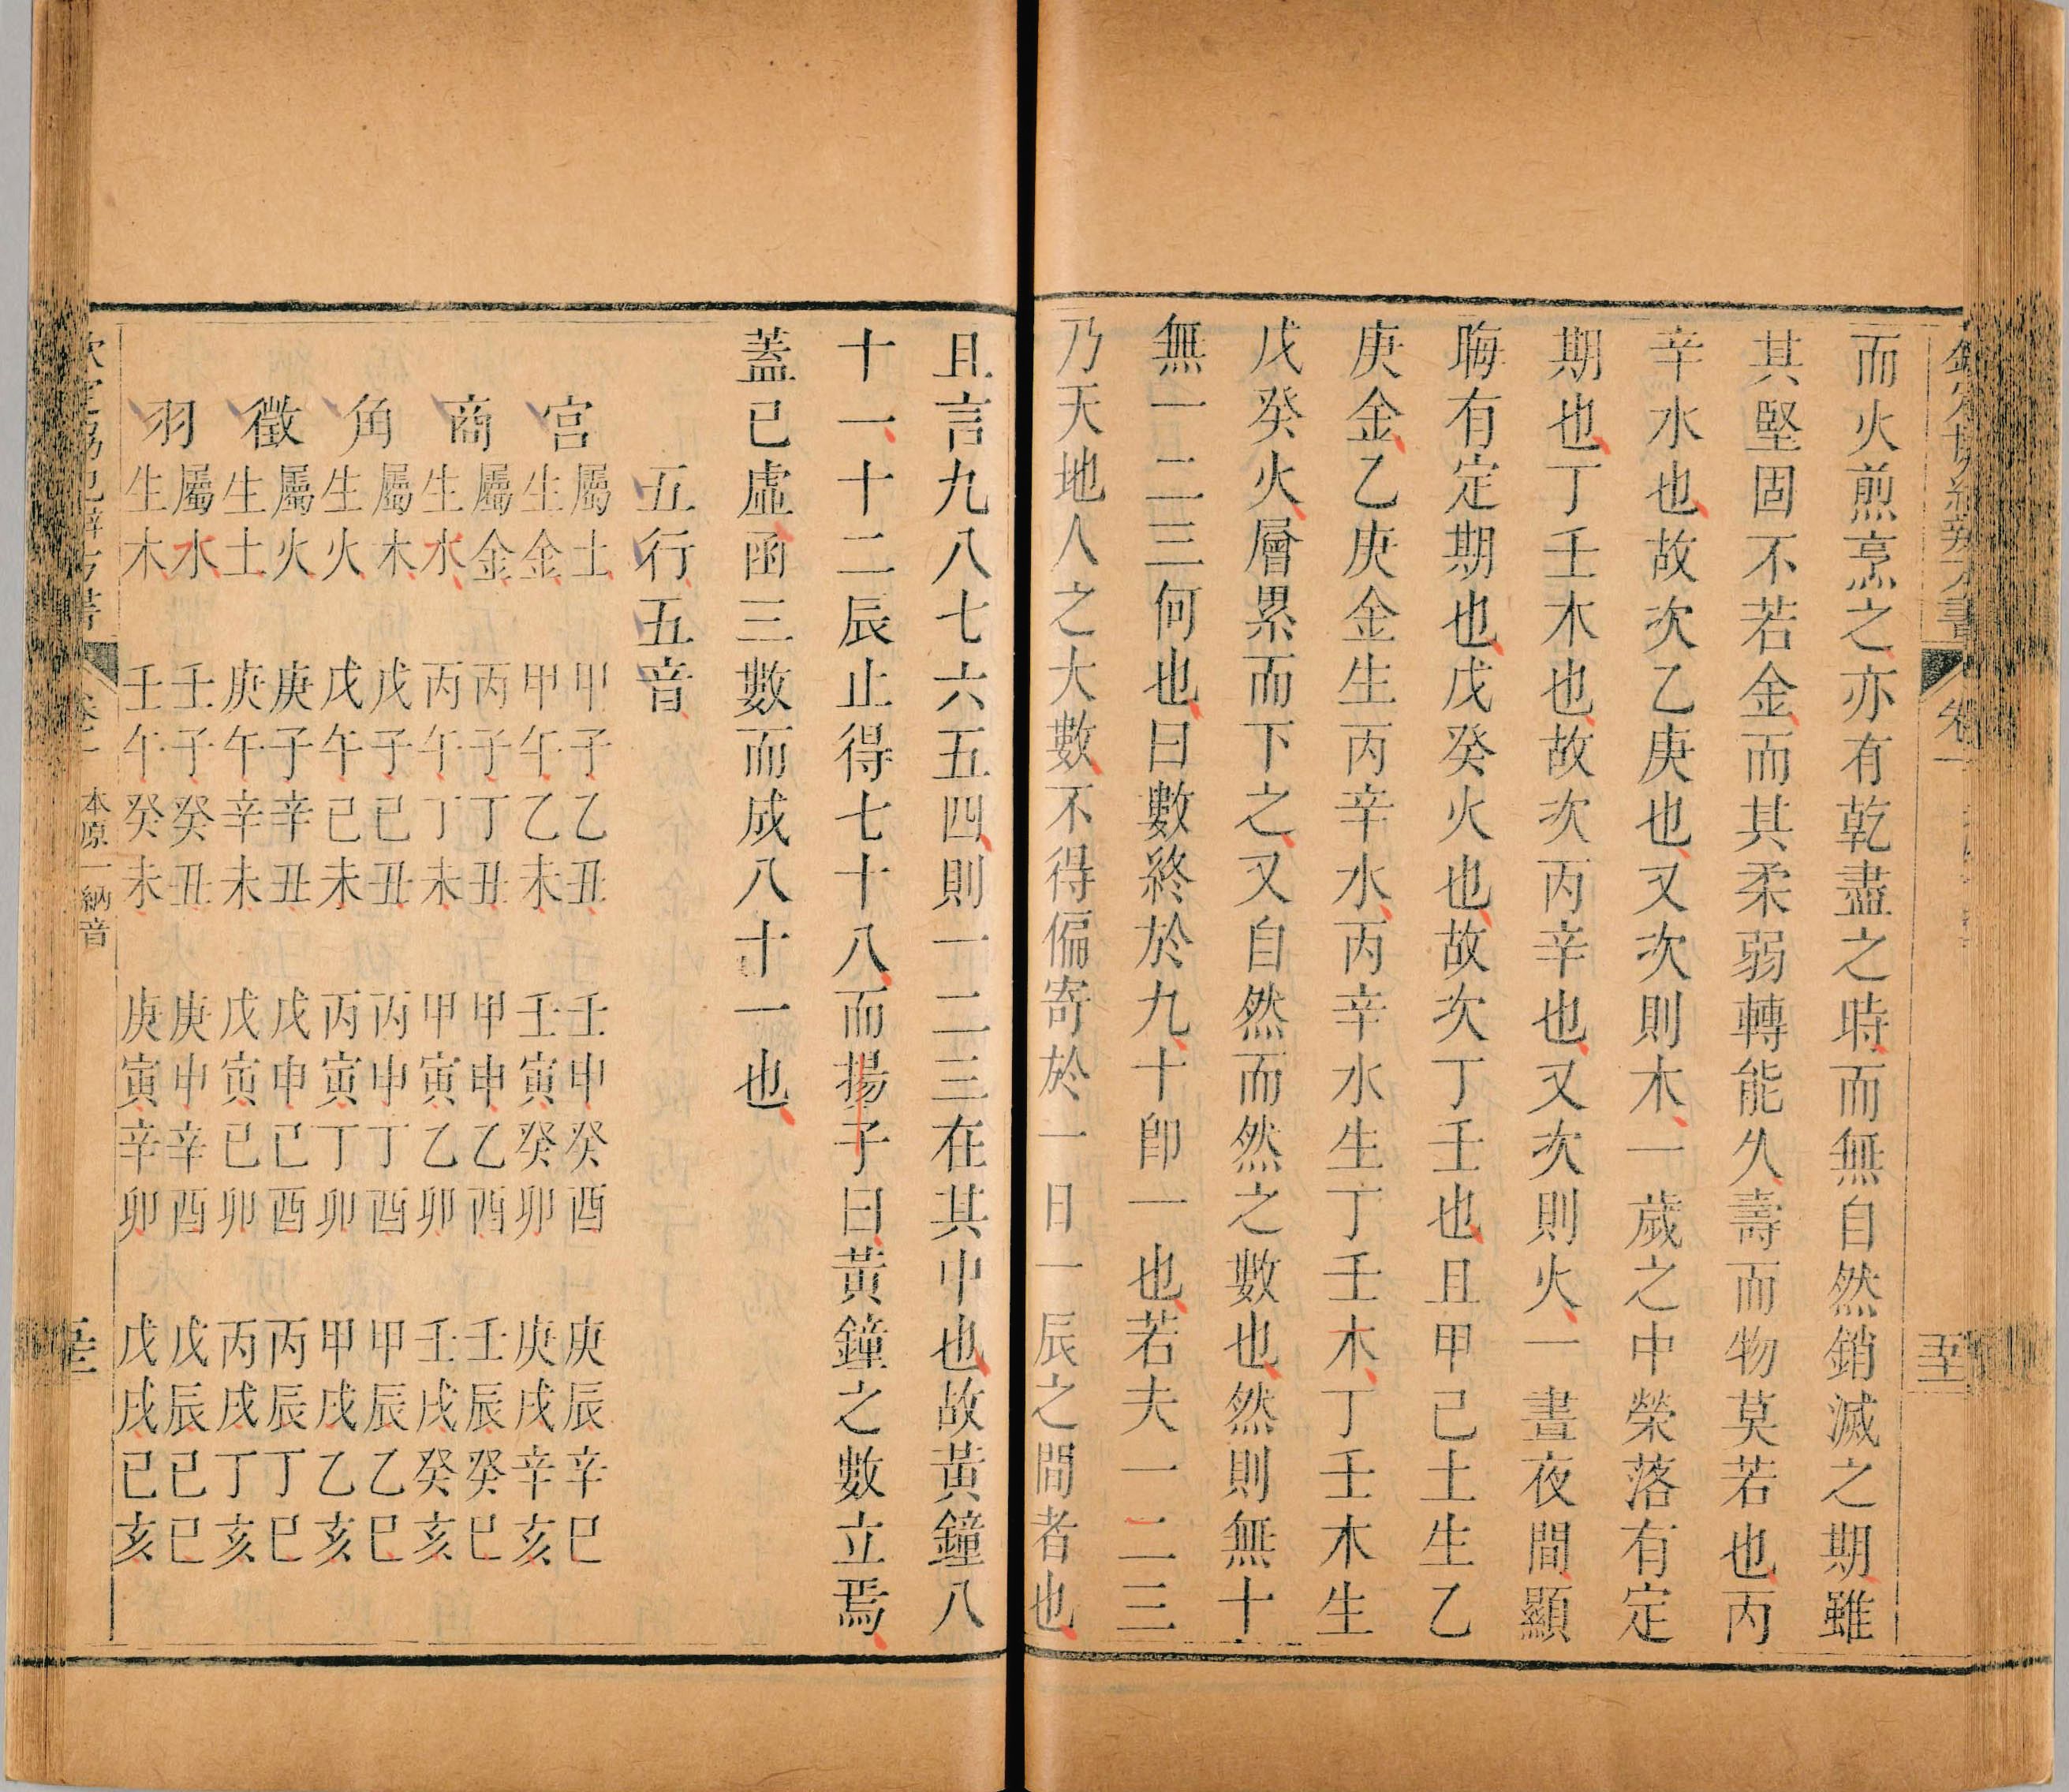 而火煎烹之亦有乾盡之時而無自然銷滅之期雖
其堅固不若金而其柔弱轉能久壽而物莫若也丙
辛水也故次乙庚也又次則木一歲之中榮落有定
期也丁壬木也故次丙辛也又次則火一晝夜間顯
晦有定期也戊癸火也故次丁壬也且甲己土生乙
庚金乙庚金生丙辛水丙辛水生丁壬木丁壬木生
戊癸火層累而下之又自然而然之數也然則無十
無一二三何也曰數終於九十卽一也若夫一二三
乃天地人之大數不得偏寄於一日一辰之間者也
且言九八七六五四則一二三在其中也故黃鐘八
十一十二辰止得七十八而揚子曰黃鐘之數立焉
蓋已虛函三數而成八十一也
五行五音
宫 屬土 甲子乙丑 壬申癸酉 庚辰辛巳
生金 甲午乙未 壬寅癸卯 庚戌辛亥
商 屬金 丙子丁丑 甲申乙酉 壬辰癸巳
生水 丙午丁未 甲寅乙卯 壬戌癸亥
角 屬木 戊子己丑 丙申丁酉 甲辰乙巳
生火 戊午己未 丙寅丁卯 甲戌乙亥
徵 屬火 庚子辛丑 戊申己酉 丙辰丁巳
生土 庚午辛未 戊寅己卯 丙戌丁亥
羽 屬水 壬子癸丑 庚申辛酉 戊辰己巳
生木 壬午癸未 庚寅辛卯 戊戌己亥
卷一 本原一 納音